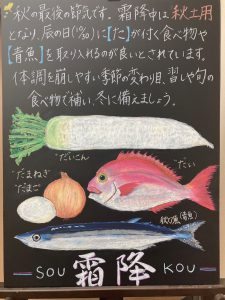 秋の最後の節気です。霜降中は秋土用
となり、辰の日(10/30)に【た】が付く食べ物や
【青魚】を取り入れるのが良いとされています。
体調を崩しやすい季節の変わり目、習しや旬の
食べ物で補い、冬に備えましょう。
"だいこん"
"たい"
"たまねぎ
たまご"
秋刀魚(青魚)
SOU 霜降 KOU